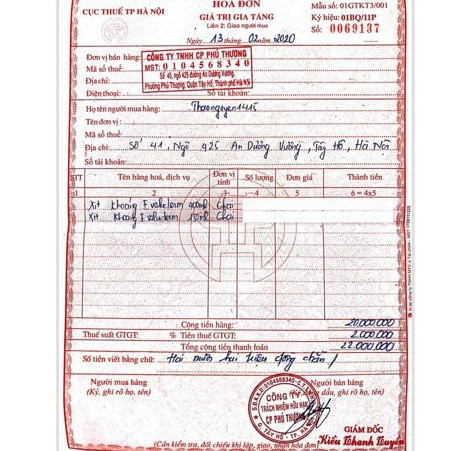 CỤC THUẾ TP HÀ NỘI
HÓA ĐƠN
GIÁ TRỊ GIA TĂNG
Liên 2: Giao người mua
Ngày 13 tháng 02 năm 2020
Mẫu số: 01GTKT3/001
Ký hiệu: 01BQ/11P
Số: 0069137
Đơn vị bán hàng:
CÔNG TY TNHH CP PHÚ THƯỢNG
Mã số thuế:
MST: 0104568340
Địa chỉ:
Số 45, ngõ 425 đường An Dương Vương,
Phường Phú Thượng, Quận Tây Hồ, Thành phố Hà Nội
Điện thoại:
Số tài khoản:
Họ tên người mua hàng: Thaonguyen1415
Tên đơn vị:
Mã số thuế:
Địa chỉ: Số 41, Ngõ 425 An Dương Vương, Tây Hồ, Hà Nội
Số tài khoản:
STT Tên hàng hoá, dịch vụ Đơn vị tính Số lượng Đơn giá Thành tiền
1 2 3 4 5 6 = 4x5
Xịt khoáng Evoluderm 400ml Chai
Xịt khoáng Evoluderm 150ml Chai
Cộng tiền hàng: 20.000.000
Thuế suất GTGT: % Tiền thuế GTGT: 2.000.000
Tổng cộng tiền thanh toán 22.000.000
Số tiền viết bằng chữ: Hai mươi hai triệu đồng chẵn /
Người mua hàng
(Ký, ghi rõ họ, tên)
Người bán hàng
CÔNG TY
TRÁCH NHIỆM HỮU HẠN
CP PHÚ THƯỢNG
GIÁM ĐỐC
Kiều Khanh Duyên
(Cần kiểm tra, đối chiếu khi lập, giao, nhận hóa đơn)